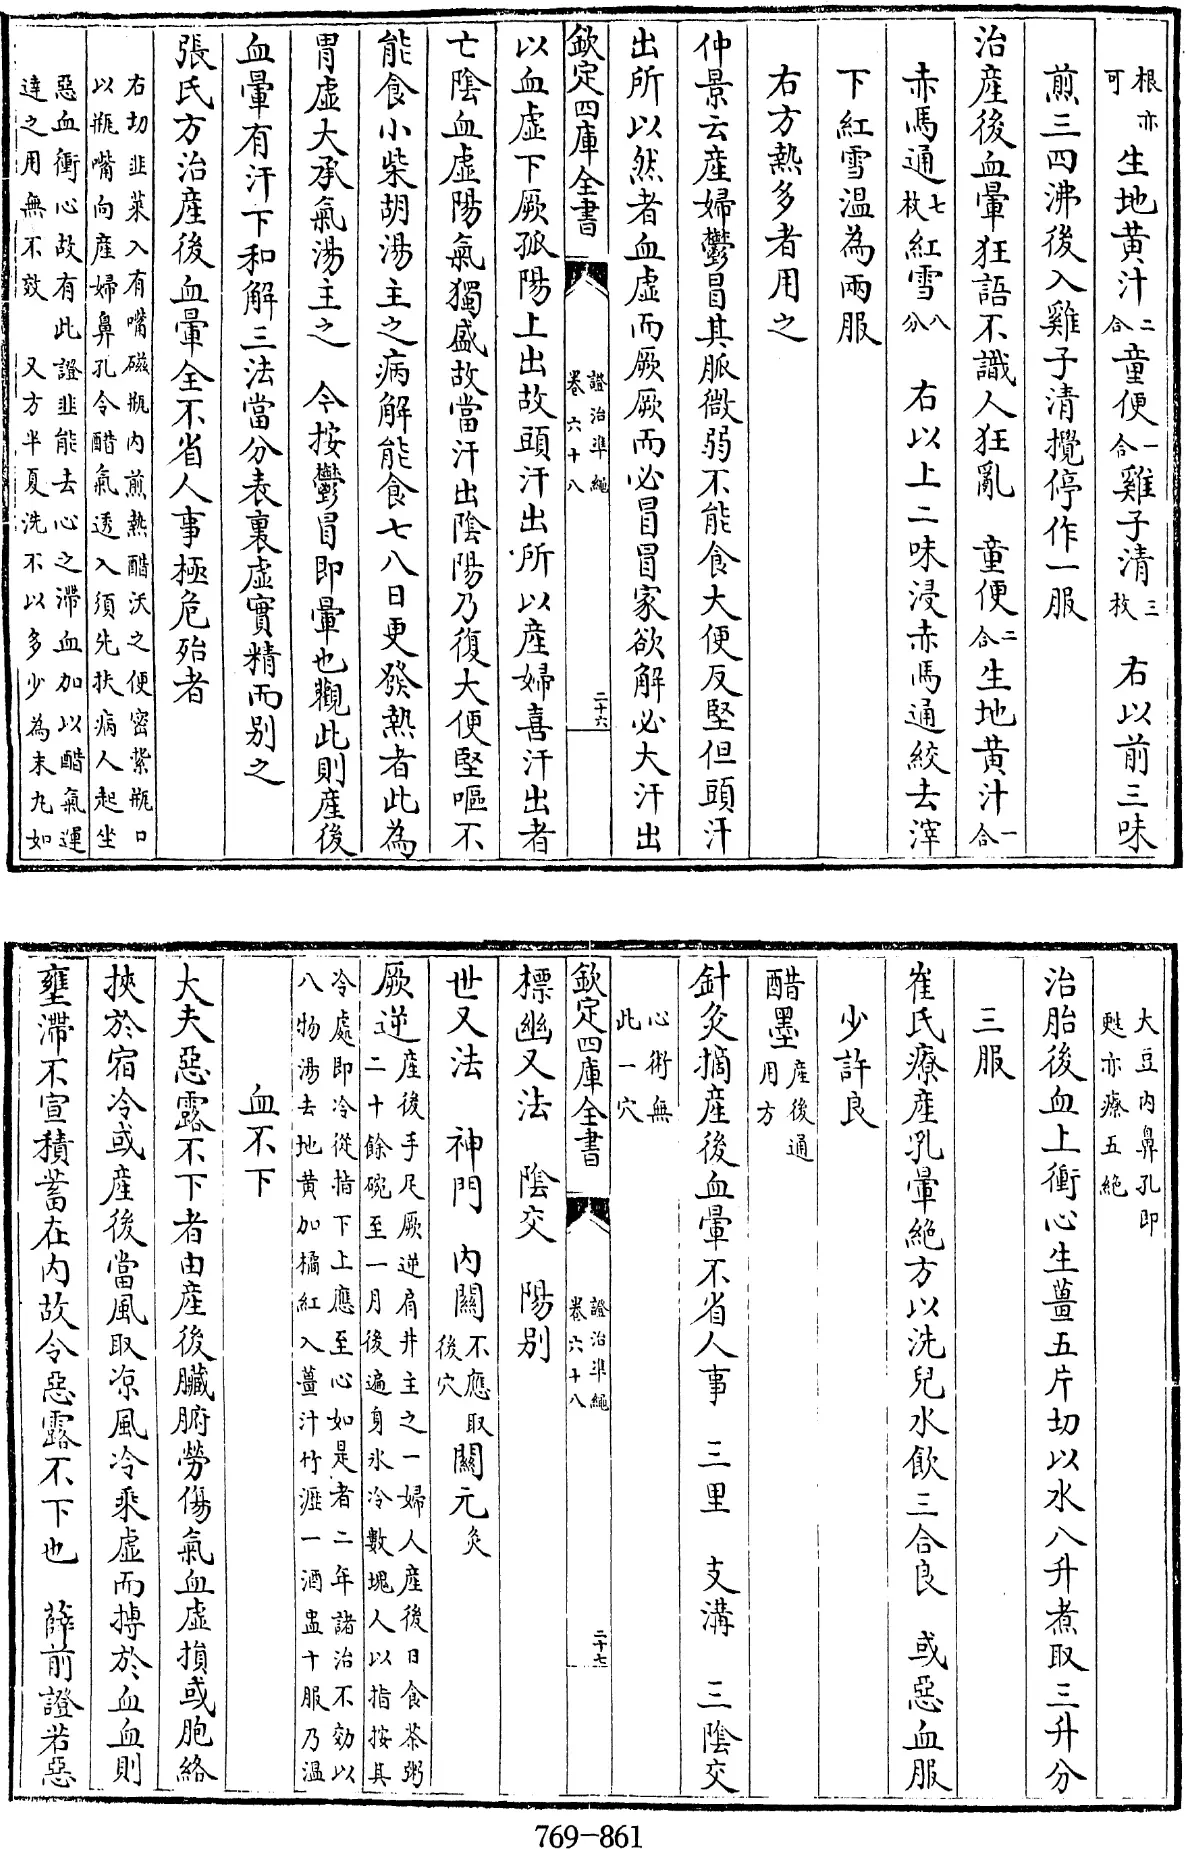 根亦可生地黄汁二合童便一合雞子清三枚 右以前三味
煎三四沸後入雞子清攪停作一服
治産後血暈狂語不識人狂亂 童便二合生地黄汁一合
赤馬通七枚紅雪八分 右以上二味浸赤馬通絞去滓
下紅雪温為兩服
右方熱多者用之
仲景云産婦鬱冒其脈微弱不能食大便反堅但頭汗
出所以然者血虚而厥厥而必冒冒家欲解必大汗出
欽定四庫全書 證治準繩卷六十八 二十六
以血虚下厥孤陽上出故頭汗出所以産婦喜汗出者
亡陰血虚陽氣獨盛故當汗出陰陽乃復大便堅嘔不
能食小柴胡湯主之病解能食七八日更發熱者此為
胃虚大承氣湯主之 今按鬱冒即暈也觀此則産後
血暈有汗下和解三法當分表裏虚實精而别之
張氏方治産後血暈全不省人事極危殆者
右切韭菜入有嘴磁瓶内煎熱醋沃之便密紮瓶口
以瓶嘴向産婦鼻孔令醋氣透入須先扶病人起坐
惡血衝心故有此證韭能去心之滯血加以醋氣運
達之用無不效 又方半夏洗不以多少為末丸如
大豆内鼻孔即
甦亦療五絶
治胎後血上衝心生薑五片切以水八升煮取三升分
三服
崔氏療産乳暈絶方以洗兒水飲三合良 或惡血服
少許良
醋墨産後通用方
針灸摘産後血暈不省人事 三里 支溝 三陰交
心術無
此一穴
欽定四庫全書 證治準繩卷六十八 二十七
標幽又法 陰交 陽别
世又法 神門 内關不應取後穴關元灸
厥逆産後手足厥逆肩井主之一婦人産後日食茶粥
二十餘碗至一月後遍身氷冷數塊人以指按其
冷處即冷從指下上應至心如是者二年諸治不効以
八物湯去地黄加橘紅入薑汁竹瀝一酒盅十服乃温
血不下
大夫惡露不下者由産後臟腑勞傷氣血虚損或胞絡
挾於宿冷或産後當風取凉風冷乘虚而搏於血血則
壅滯不宣積蓄在内故令惡露不下也 薛前證若惡
769-861